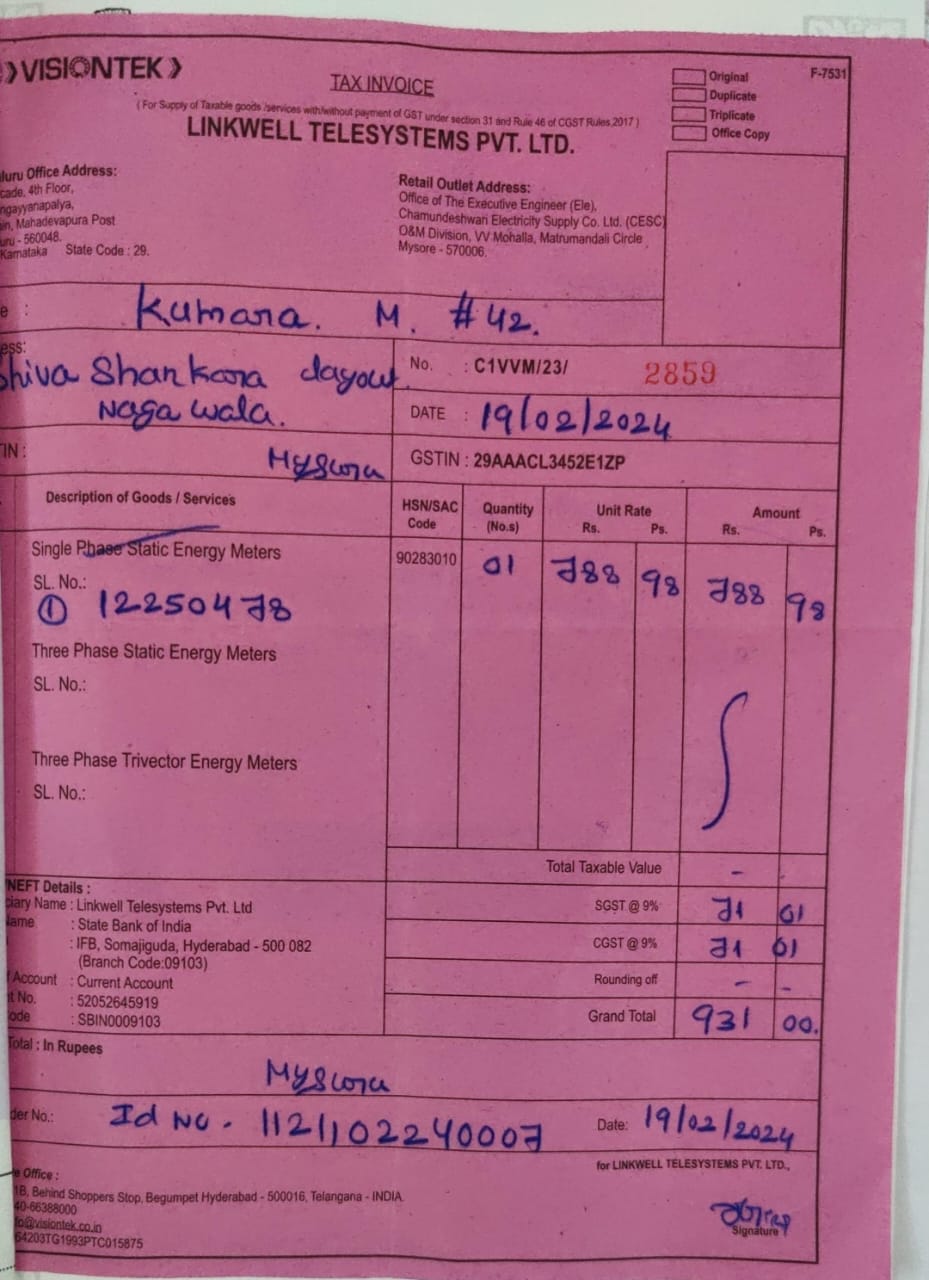 VISIONTEK
TAX INVOICE
( For Supply of Taxable goods /services with/without payment of GST under section 31 and Rule 46 of CGST Rules,2017 )
LINKWELL TELESYSTEMS PVT. LTD.
Original
Duplicate
Triplicate
Office Copy
F-7531
luru Office Address:
cade, 4th Floor,
ngayyanapalya,
in, Mahadevapura Post
uru - 560048.
Karnataka State Code : 29.
Retail Outlet Address:
Office of The Executive Engineer (Ele),
Chamundeshwari Electricity Supply Co. Ltd. (CESC)
O&M Division, VV Mohalla, Matrumandali Circle
Mysore - 570006.
e : Kumara. M. #42.
ess:
Shiva Shankara layout
Nagawala.
No. : C1VVM/23/ 2859
DATE : 19/02/2024
TIN : Mysore
GSTIN : 29AAACL3452E1ZP
Description of Goods / Services HSN/SAC Code Quantity (No.s) Unit Rate Rs. Ps. Amount Rs. Ps.
Single Phase Static Energy Meters 90283010 01 788 98 788 98
SL. No.:
① 12250478
Three Phase Static Energy Meters
SL. No.:
Three Phase Trivector Energy Meters
SL. No.:
Total Taxable Value -
NEFT Details :
ciary Name : Linkwell Telesystems Pvt. Ltd
ame : State Bank of India
: IFB, Somajiguda, Hyderabad - 500 082
(Branch Code:09103)
f Account : Current Account
t No. : 52052645919
ode : SBIN0009103
SGST @ 9% 71 01
CGST @ 9% 71 01
Rounding off - -
Grand Total 931 00.
Total : In Rupees
Mysore
der No.: Id No. 1121102240007 Date: 19/02/2024
for LINKWELL TELESYSTEMS PVT. LTD.,
e Office :
1B, Behind Shoppers Stop, Begumpet Hyderabad - 500016, Telangana - INDIA.
40-66388000
fo@visiontek.co.in
64203TG1993PTC015875
Signature